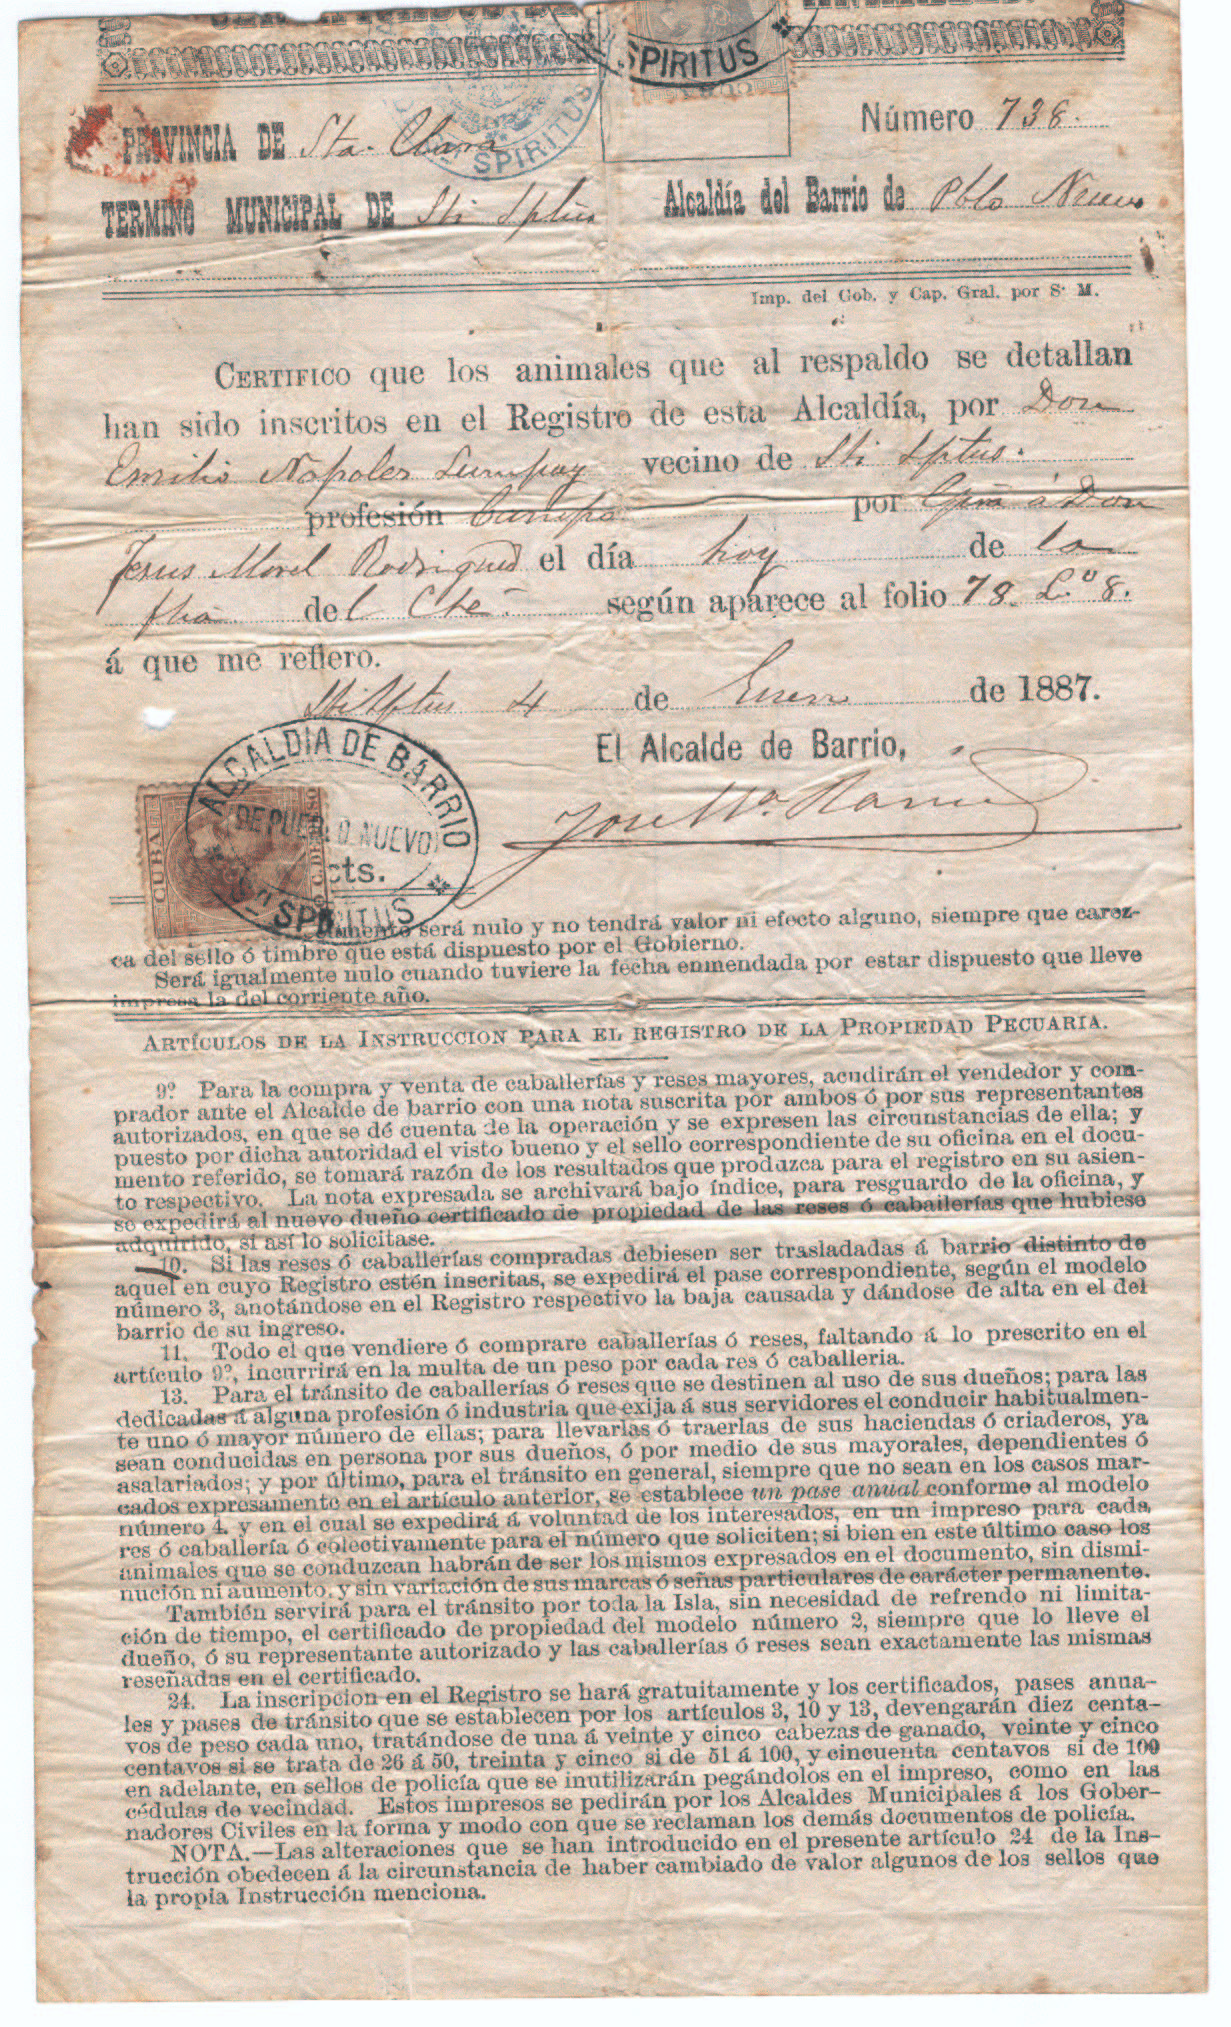 SPIRITUS
CUBA
SPIRITUS
Número 738.
PROVINCIA DE Sta. Clara
TERMINO MUNICIPAL DE Sti Sptus Alcaldía del Barrio de Pblo Nuevo
Imp. del Gob. y Cap. Gral. por S. M.
CERTIFICO que los animales que al respaldo se detallan
han sido inscritos en el Registro de esta Alcaldía, por Don
Emilio Napoles vecino de Sti Sptus.
profesión Campo por á Don
Jesus Morel Rodriguez el día hoy de la
fha del Cte según aparece al folio 78. L.º 8.
á que me refiero.
Sti Sptus 4 de Enero de 1887.
El Alcalde de Barrio,
ALCALDIA DE BARRIO
DE PUEBLO NUEVO
CUBA
cts.
SPIRITUS
José Mª.
será nulo y no tendrá valor ni efecto alguno, siempre que carez-
ca del sello ó timbre que está dispuesto por el Gobierno.
Será igualmente nulo cuando tuviere la fecha enmendada por estar dispuesto que lleve
impresa la del corriente año.
ARTÍCULOS DE LA INSTRUCCION PARA EL REGISTRO DE LA PROPIEDAD PECUARIA.
9º Para la compra y venta de caballerías y reses mayores, acudirán el vendedor y com-
prador ante el Alcalde de barrio con una nota suscrita por ambos ó por sus representantes
autorizados, en que se dé cuenta de la operación y se expresen las circunstancias de ella; y
puesto por dicha autoridad el visto bueno y el sello correspondiente de su oficina en el docu-
mento referido, se tomará razón de los resultados que produzca para el registro en su asien-
to respectivo. La nota expresada se archivará bajo índice, para resguardo de la oficina, y
se expedirá al nuevo dueño certificado de propiedad de las reses ó caballerías que hubiese
adquirido, si así lo solicitase.
10. Si las reses ó caballerías compradas debiesen ser trasladadas á barrio distinto de
aquel en cuyo Registro estén inscritas, se expedirá el pase correspondiente, según el modelo
número 3, anotándose en el Registro respectivo la baja causada y dándose de alta en el del
barrio de su ingreso.
11. Todo el que vendiere ó comprare caballerías ó reses, faltando á lo prescrito en el
artículo 9º, incurrirá en la multa de un peso por cada res ó caballeria.
13. Para el tránsito de caballerías ó reses que se destinen al uso de sus dueños; para las
dedicadas á alguna profesión ó industria que exija á sus servidores el conducir habitualmen-
te uno ó mayor número de ellas; para llevarlas ó traerlas de sus haciendas ó criaderos, ya
sean conducidas en persona por sus dueños, ó por medio de sus mayorales, dependientes ó
asalariados; y por último, para el tránsito en general, siempre que no sean en los casos mar-
cados expresamente en el artículo anterior, se establece un pase anual conforme al modelo
número 4. y en el cual se expedirá á voluntad de los interesados, en un impreso para cada
res ó caballería ó colectivamente para el número que soliciten; si bien en este último caso los
animales que se conduzcan habrán de ser los mismos expresados en el documento, sin dismi-
nución ni aumento, y sin variación de sus marcas ó señas particulares de carácter permanente.
También servirá para el tránsito por toda la Isla, sin necesidad de refrendo ni limita-
ción de tiempo, el certificado de propiedad del modelo número 2, siempre que lo lleve el
dueño, ó su representante autorizado y las caballerías ó reses sean exactamente las mismas
reseñadas en el certificado.
24. La inscripcion en el Registro se hará gratuitamente y los certificados, pases anua-
les y pases de tránsito que se establecen por los artículos 3, 10 y 13, devengarán diez centa-
vos de peso cada uno, tratándose de una á veinte y cinco cabezas de ganado, veinte y cinco
centavos si se trata de 26 á 50, treinta y cinco si de 51 á 100, y cincuenta centavos si de 100
en adelante, en sellos de policía que se inutilizarán pegándolos en el impreso, como en las
cédulas de vecindad. Estos impresos se pedirán por los Alcaldes Municipales á los Gober-
nadores Civiles en la forma y modo con que se reclaman los demás documentos de policía.
NOTA.—Las alteraciones que se han introducido en el presente artículo 24 de la Ins-
trucción obedecen á la circunstancia de haber cambiado de valor algunos de los sellos que
la propia Instrucción menciona.